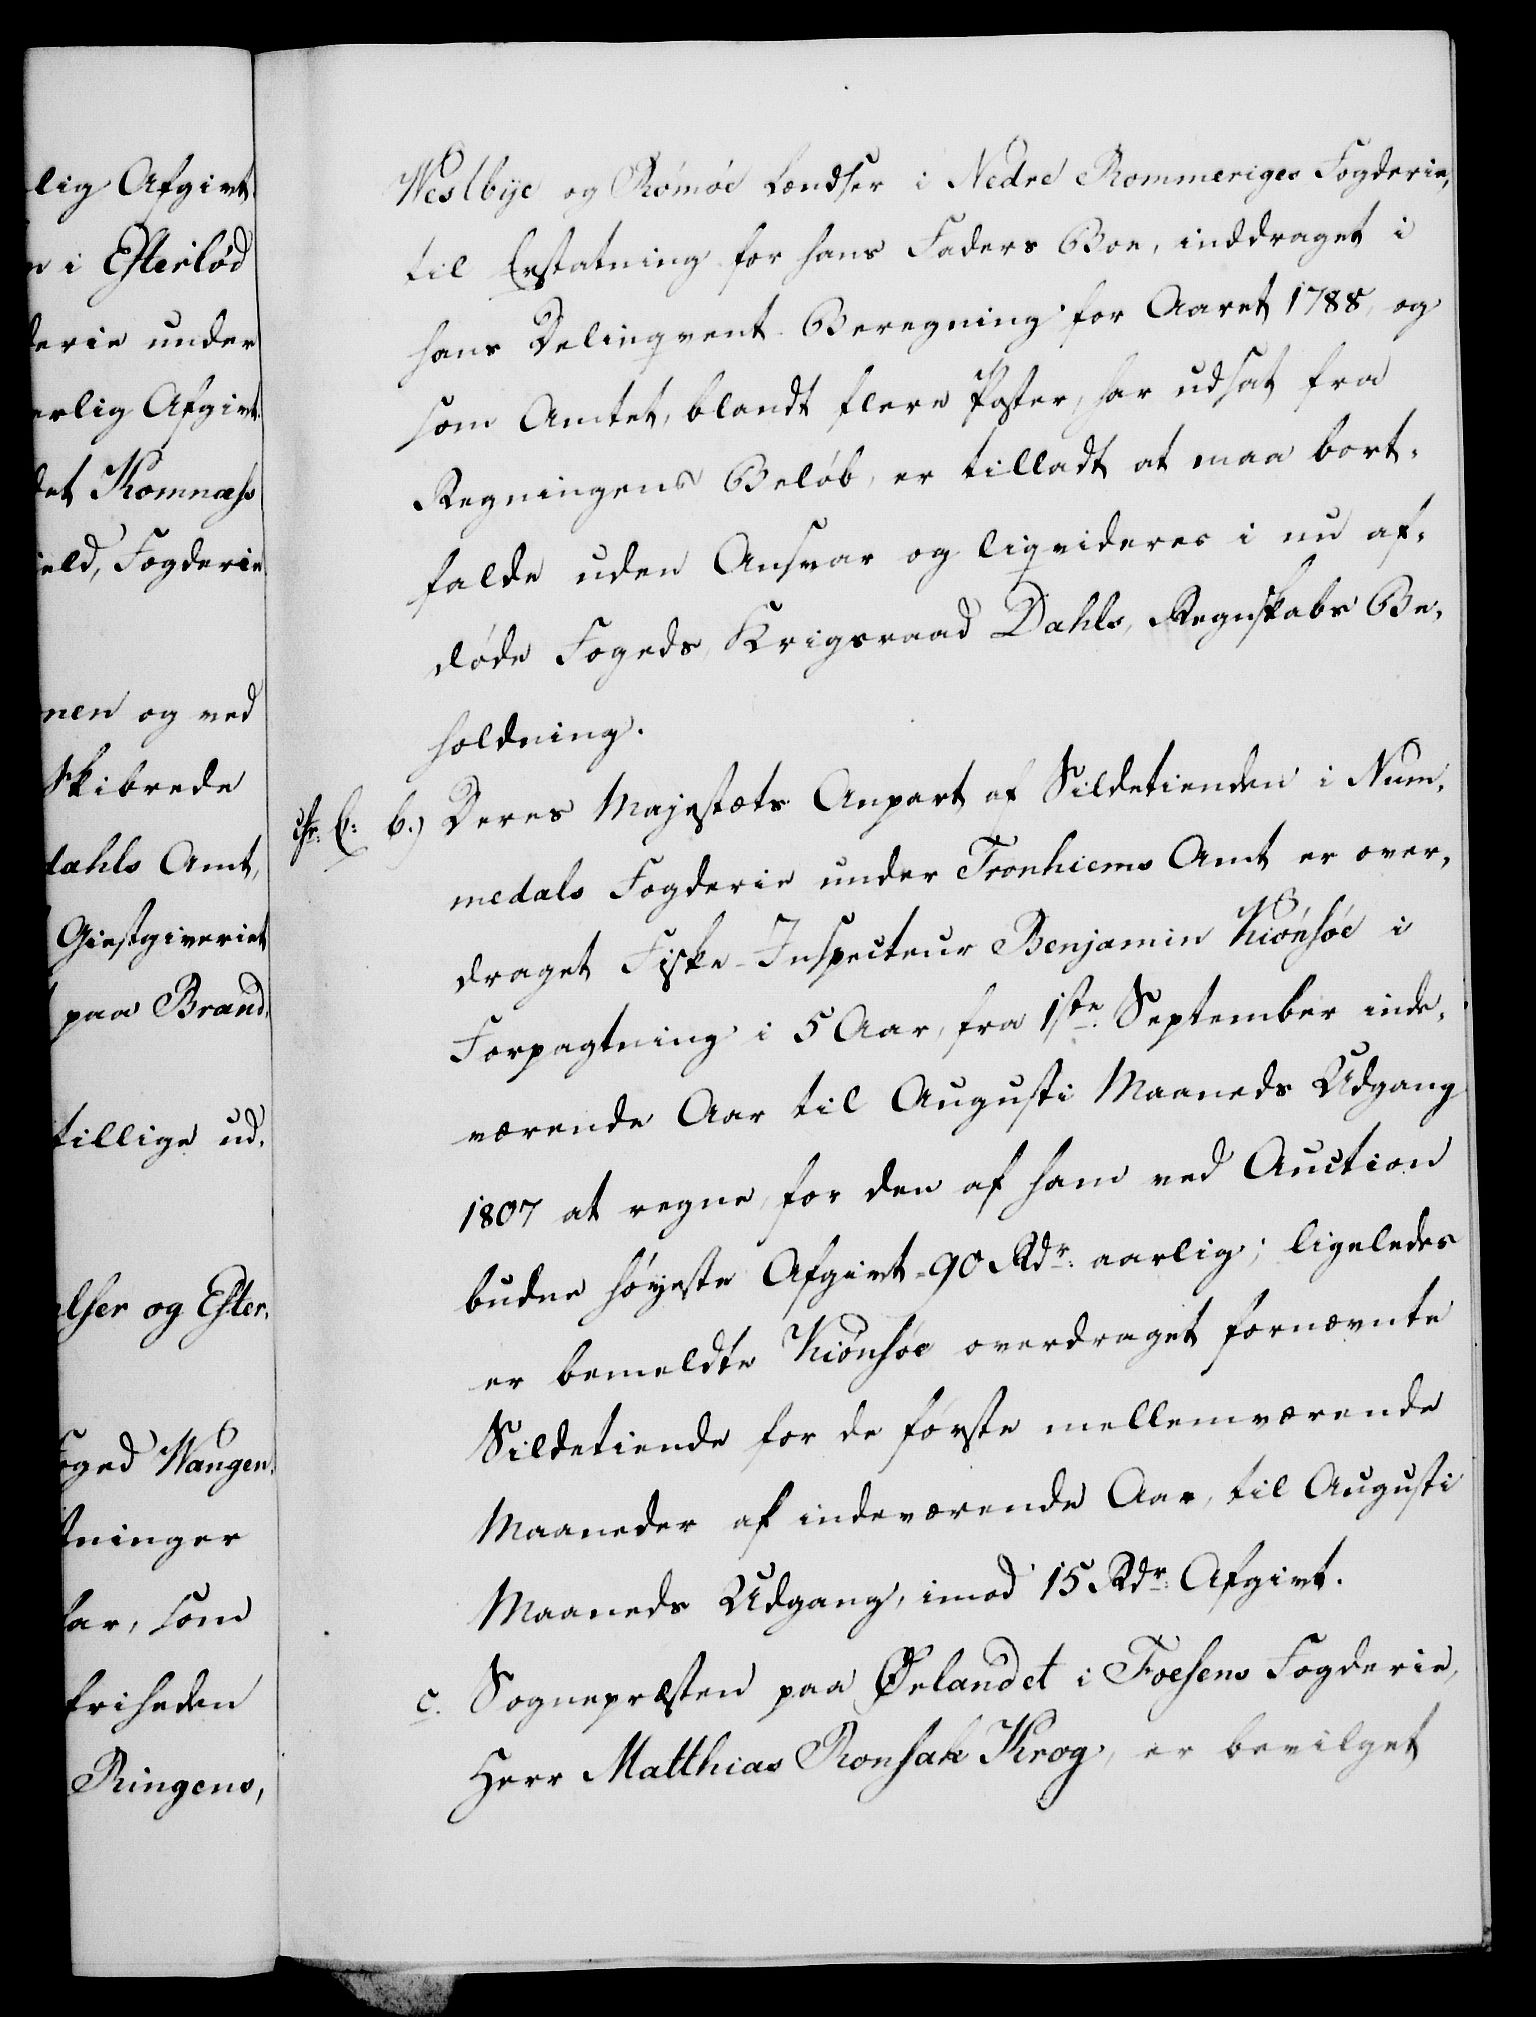 lig Afgivt.
n i Esterlød
derie under
erlig Afgivt.
det Komnæhs
ield, Fogderie
nen og ved
Skibrede
dahls Amt,
Giestgiveriet
paa Brand,
tillige ud,
elser og Efter,
Foged Wangen,
tninger
har, som
friheden
Ringens,
Westbÿe og Rømøe Lændser i Nedre Rommeriges Fogderie,
til Erstatning for hans Faders Boe, inddraget i
hans Delinqvent-Beregning for Aaret 1788, og
som Amtet, blandt flere Poster, har udsat fra
Regningens Beløb, er tilladt at maa bort-
falde uden Ansvar og liqvideres i nu af-
døde Fogeds, Krigsraad Dahls, Regnskabs Be-
holdning.
cfr. C: b.) Deres Majestæts Anpart af Sildetienden i Num-
medals Fogderie under Tronhiems Amt er over-
draget Fiske-Inspecteur Benjamin Kiønsøe i
Forpagtning i 5 Aar, fra 1ste September inde-
værende Aar til Augusti Maaneds Udgang
1807 at regne, for den af ham ved Auction
budne høÿeste Afgivt 90 Rdr: aarlig; ligeledes
er bemeldte Kiønsøe overdraget fornævnte
Sildetiende for de første mellemværende
Maaneder af indeværende Aar, til Augusti
Maaneds Udgang, imod 15 Rdr: Afgivt.
c. Sognepræsten paa Ørlandet i Foesens Fogderie,
Herr Matthias Ronsak Krog, er bevilget